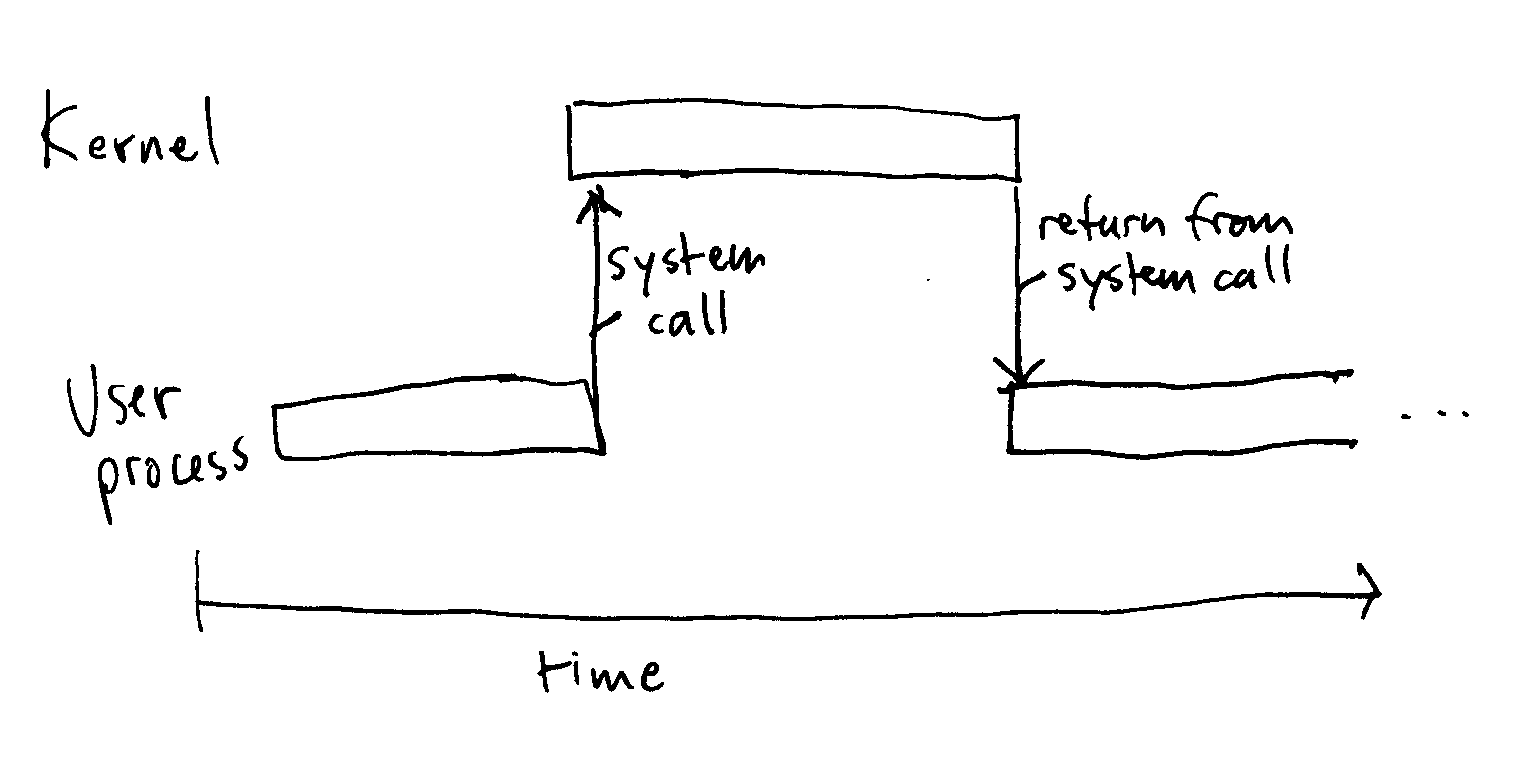 Kernel
system
call
return from
system call
User
process
...
time